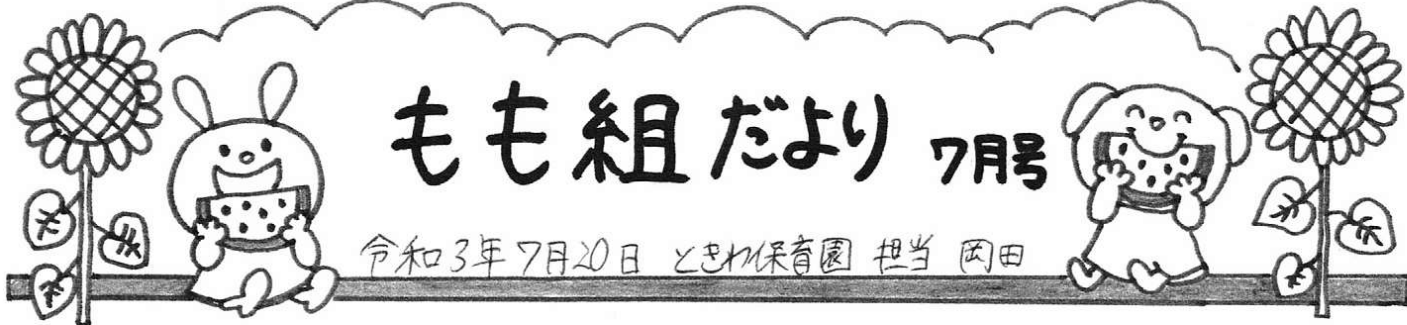 もも組だより 7月号
令和3年7月20日 ときわ保育園 担当 岡田